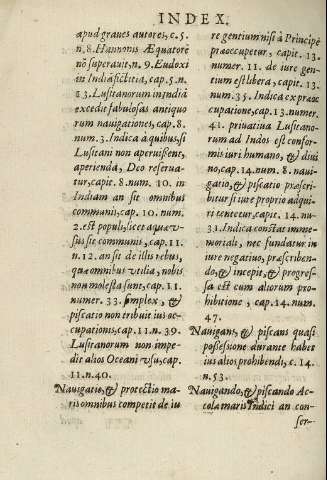 INDEX.
apud graues autores, c. 5.
n. 8. Hannonis Æquatorē
nō superauit, n. 9. Eudoxi
in Indiā fictitia, cap. 5. n.
23. Lusitanorum in Indiā
excedit fabulosas antiquo
rum nauigationes, cap. 8.
num. 3. Indica à quibus, si
Lusitani non aperuissent,
aperienda, Deo reserua-
tur, capit. 8. num. 10. in
Indiam an sit omnibus
communis, cap. 10. num.
2. est populi, licet aquæ v-
sus sit communis, cap. 11.
n. 12. an sit de illis rebus,
quæ omnibus vtilia, nobis
non molesta sunt, cap. 11.
numer. 33. simplex, &
piscatio non tribuit ius oc-
cupationis, cap. 11. n. 39.
Lusitanorum non impe-
dit alios Oceani vsu, cap.
11. n. 40.
Nauigatio, & protectio ma-
ris omnibus competit de iu
re gentium nisi à Principe
præoccupetur, capit. 13.
numer. 11. de iure gen-
tium est libera, capit. 13.
num. 35. Indica ex præoc
cupatione, cap. 13. numer.
41. priuatiua Lusitano-
rum ad Indos est confor-
mis iuri humano, & diui
no, cap. 14. num. 8. naui-
gatio, & piscatio præscri-
bitur si iure proprio adqui-
ri tentetur, capit. 14. nu-
31. Indica constat imme-
moriale, nec fundatur in
iure negatiuo, præscriben-
do, & incepit, & progres-
sa est cum aliorum pro-
hibitione, cap. 14. num.
47.
Nauigans, & piscans quasi
possessione durante habet
ius alios prohibendi, c. 14.
n. 53.
Nauigando, & piscando Ac-
colæ maris Indici an con-
ser-